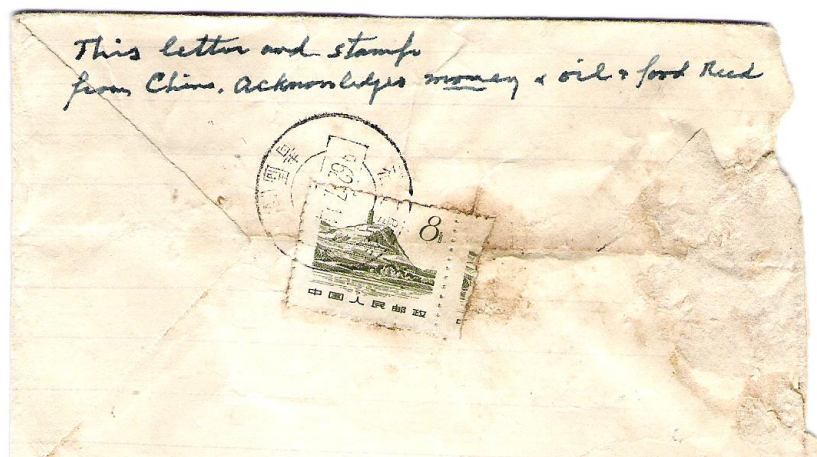 This letter and stamp
from China. Acknowledges money & oil & food Recd
8
中国人民邮政